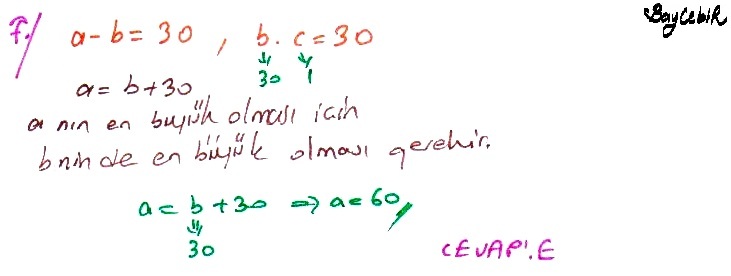 BayCebir
7./ a-b=30 , b.c=30
30 1
a=b+30
a nın en büyük olması için
b nin de en büyük olması gerekir.
a=b+30 ⇒ a=60
30
CEVAP:E